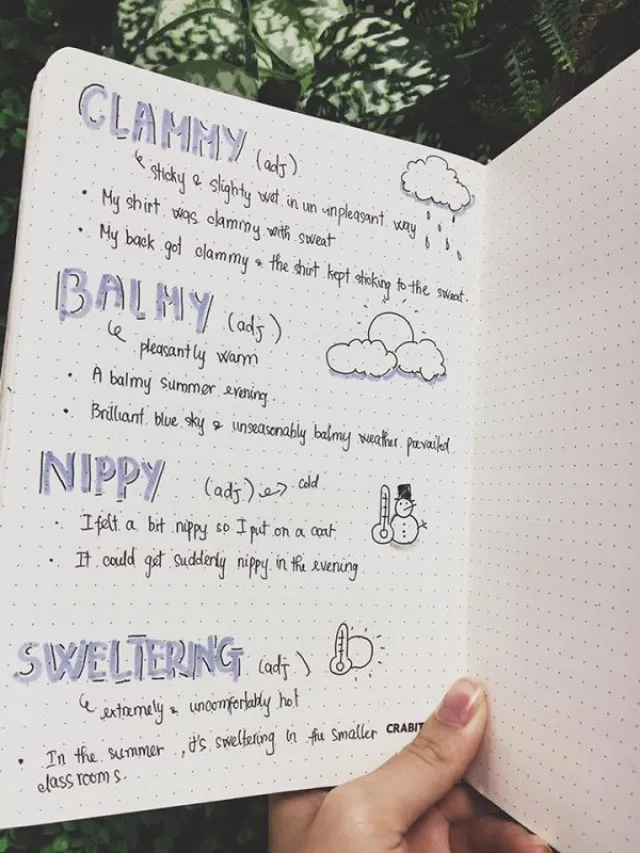 CLAMMY (adj)
sticky & slighty wet in un unpleasant way
• My shirt was clammy with sweat
• My back got clammy & the shirt kept sticking to the sweat.
BALMY (adj)
pleasantly warm
• A balmy summer evening.
• Brilliant blue sky & unseasonably balmy weather prevailed
NIPPY (adj) cold
• I felt a bit nippy so I put on a coat.
• It could get suddenly nippy in the evening
SWELTERING (adj)
extremely & uncomfortably hot
• In the summer, it's sweltering in the smaller
classrooms.
CRABIT